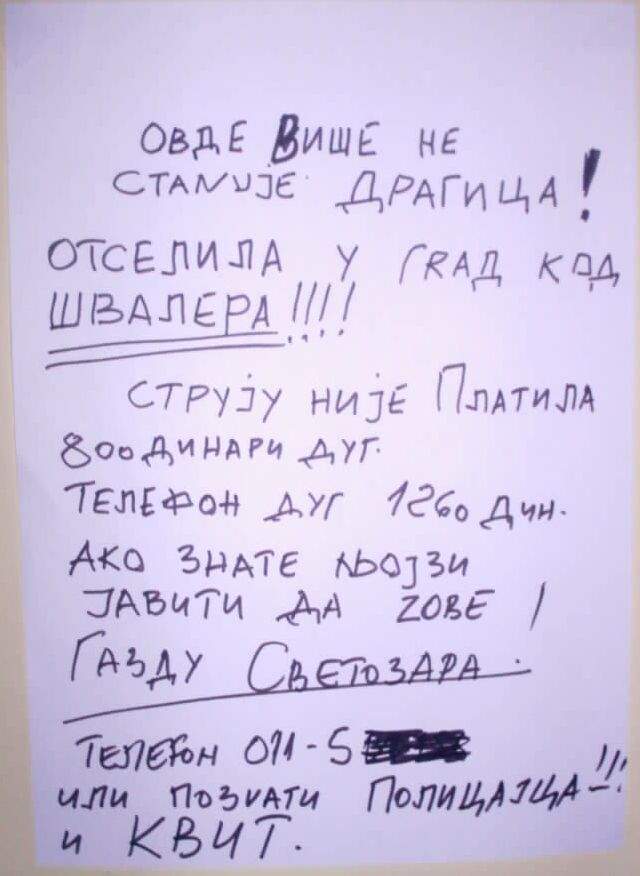 ОВДЕ ВИШЕ НЕ
СТАNUJE ДРАГИЦА!
ОТСЕЛИЛА У ГRАД КОД
ШВАЛЕРА!!!!
СТРУЈУ НИЈЕ ПЛАТИЛА
800 ДИНАРИ ДУГ.
ТЕЛЕФОН ДУГ 1260 ДИН.
АКО ЗНАТЕ ЊОЈЗИ
ЈАВИТИ ДА ZOВЕ /
ГАЗДУ СВЕТОЗАРА.
ТЕЛЕФОН 011-5
ИЛИ ПОЗVАТИ ПОЛИЦАЈЦА!!!
И КВИТ.